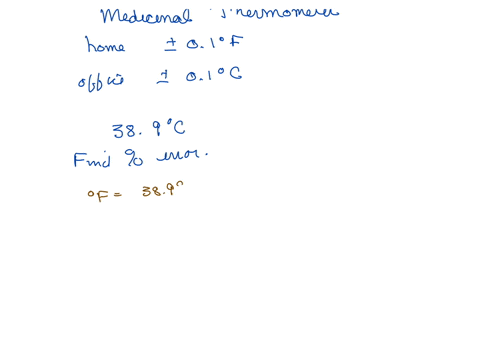 Medicinal Thermometer
home ± 0.1°F
office ± 0.1°C
38.9°C
Find % error.
°F = 38.9°